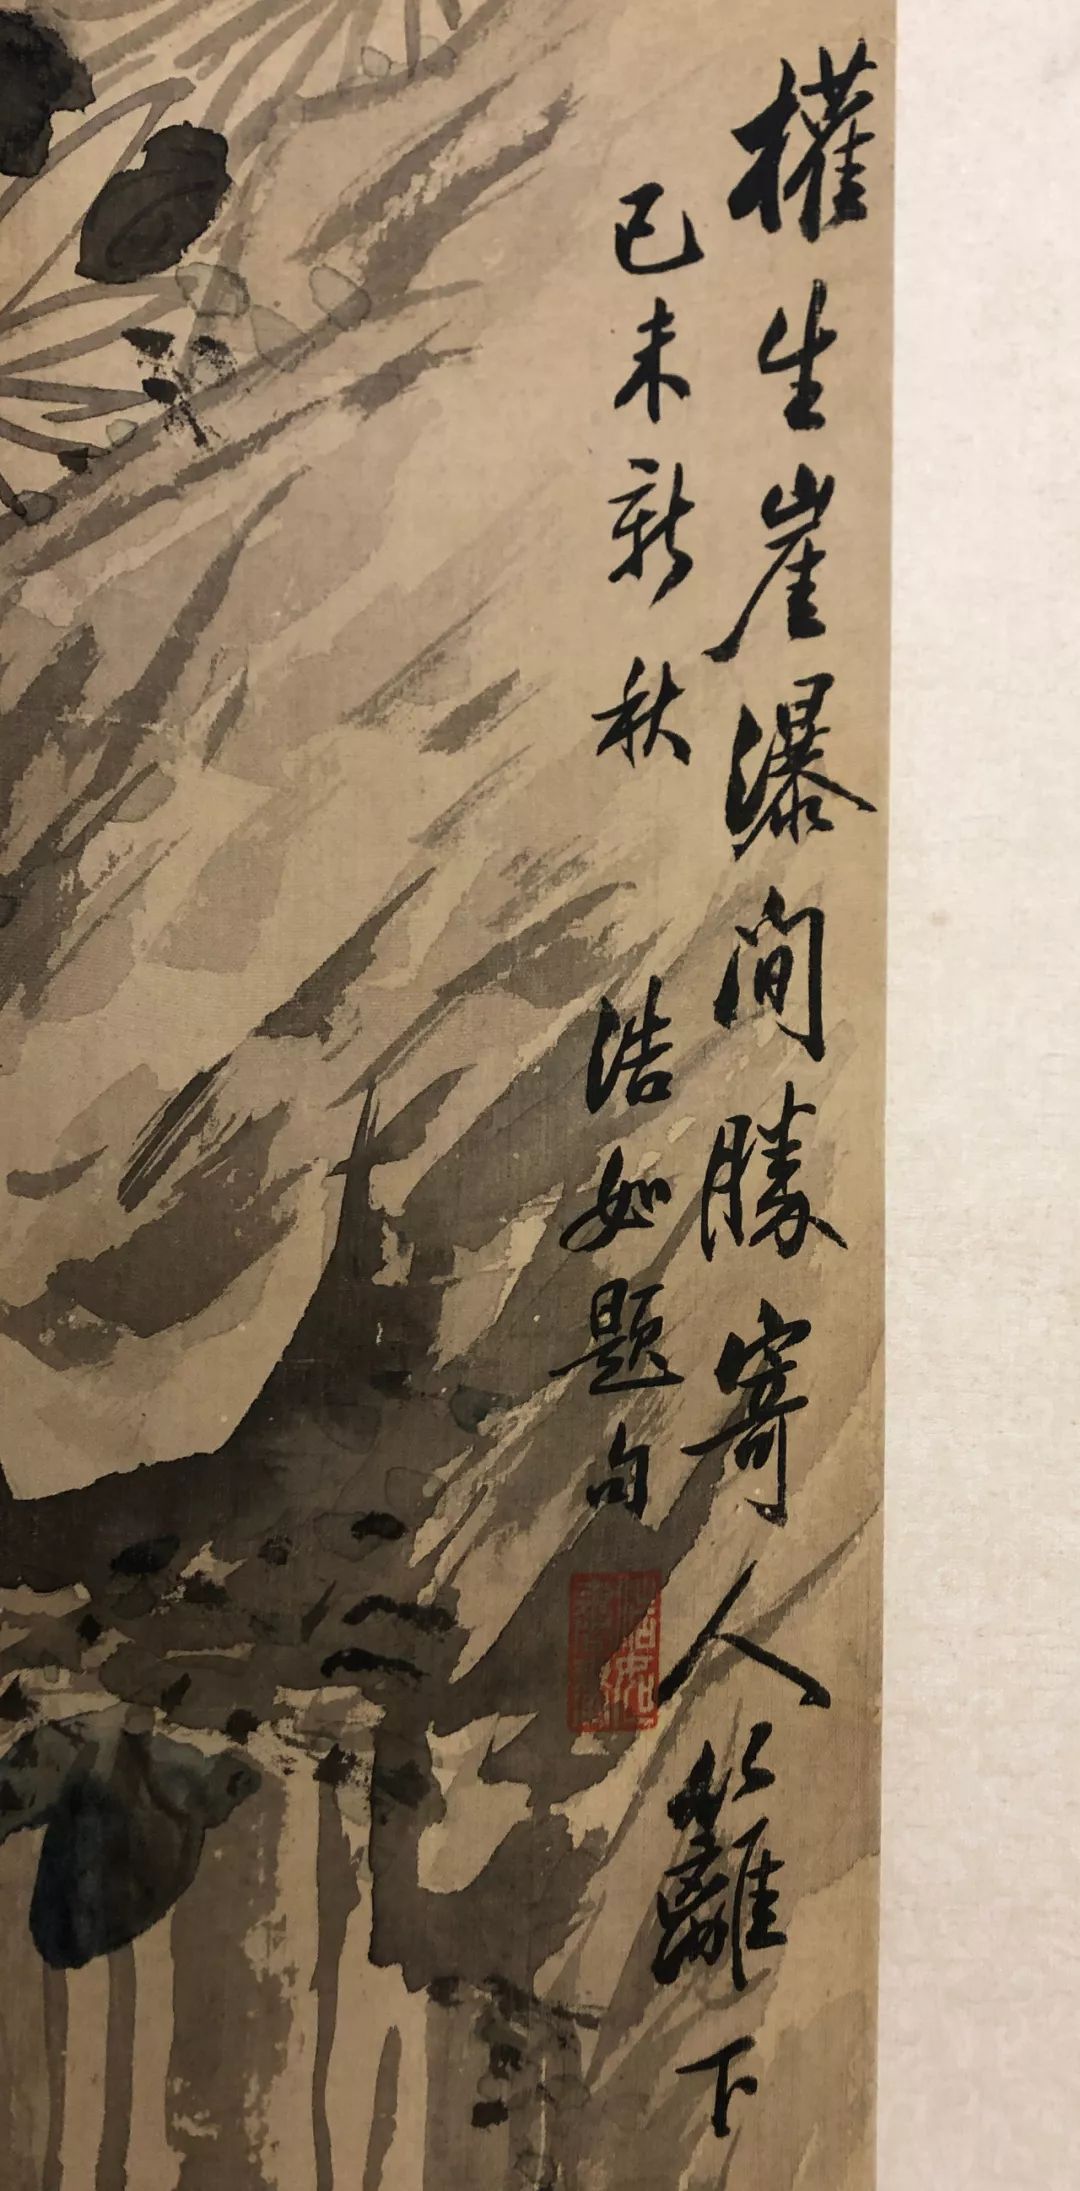 權生崖瀑间勝寄人籬下
己未新秋 浩如題句